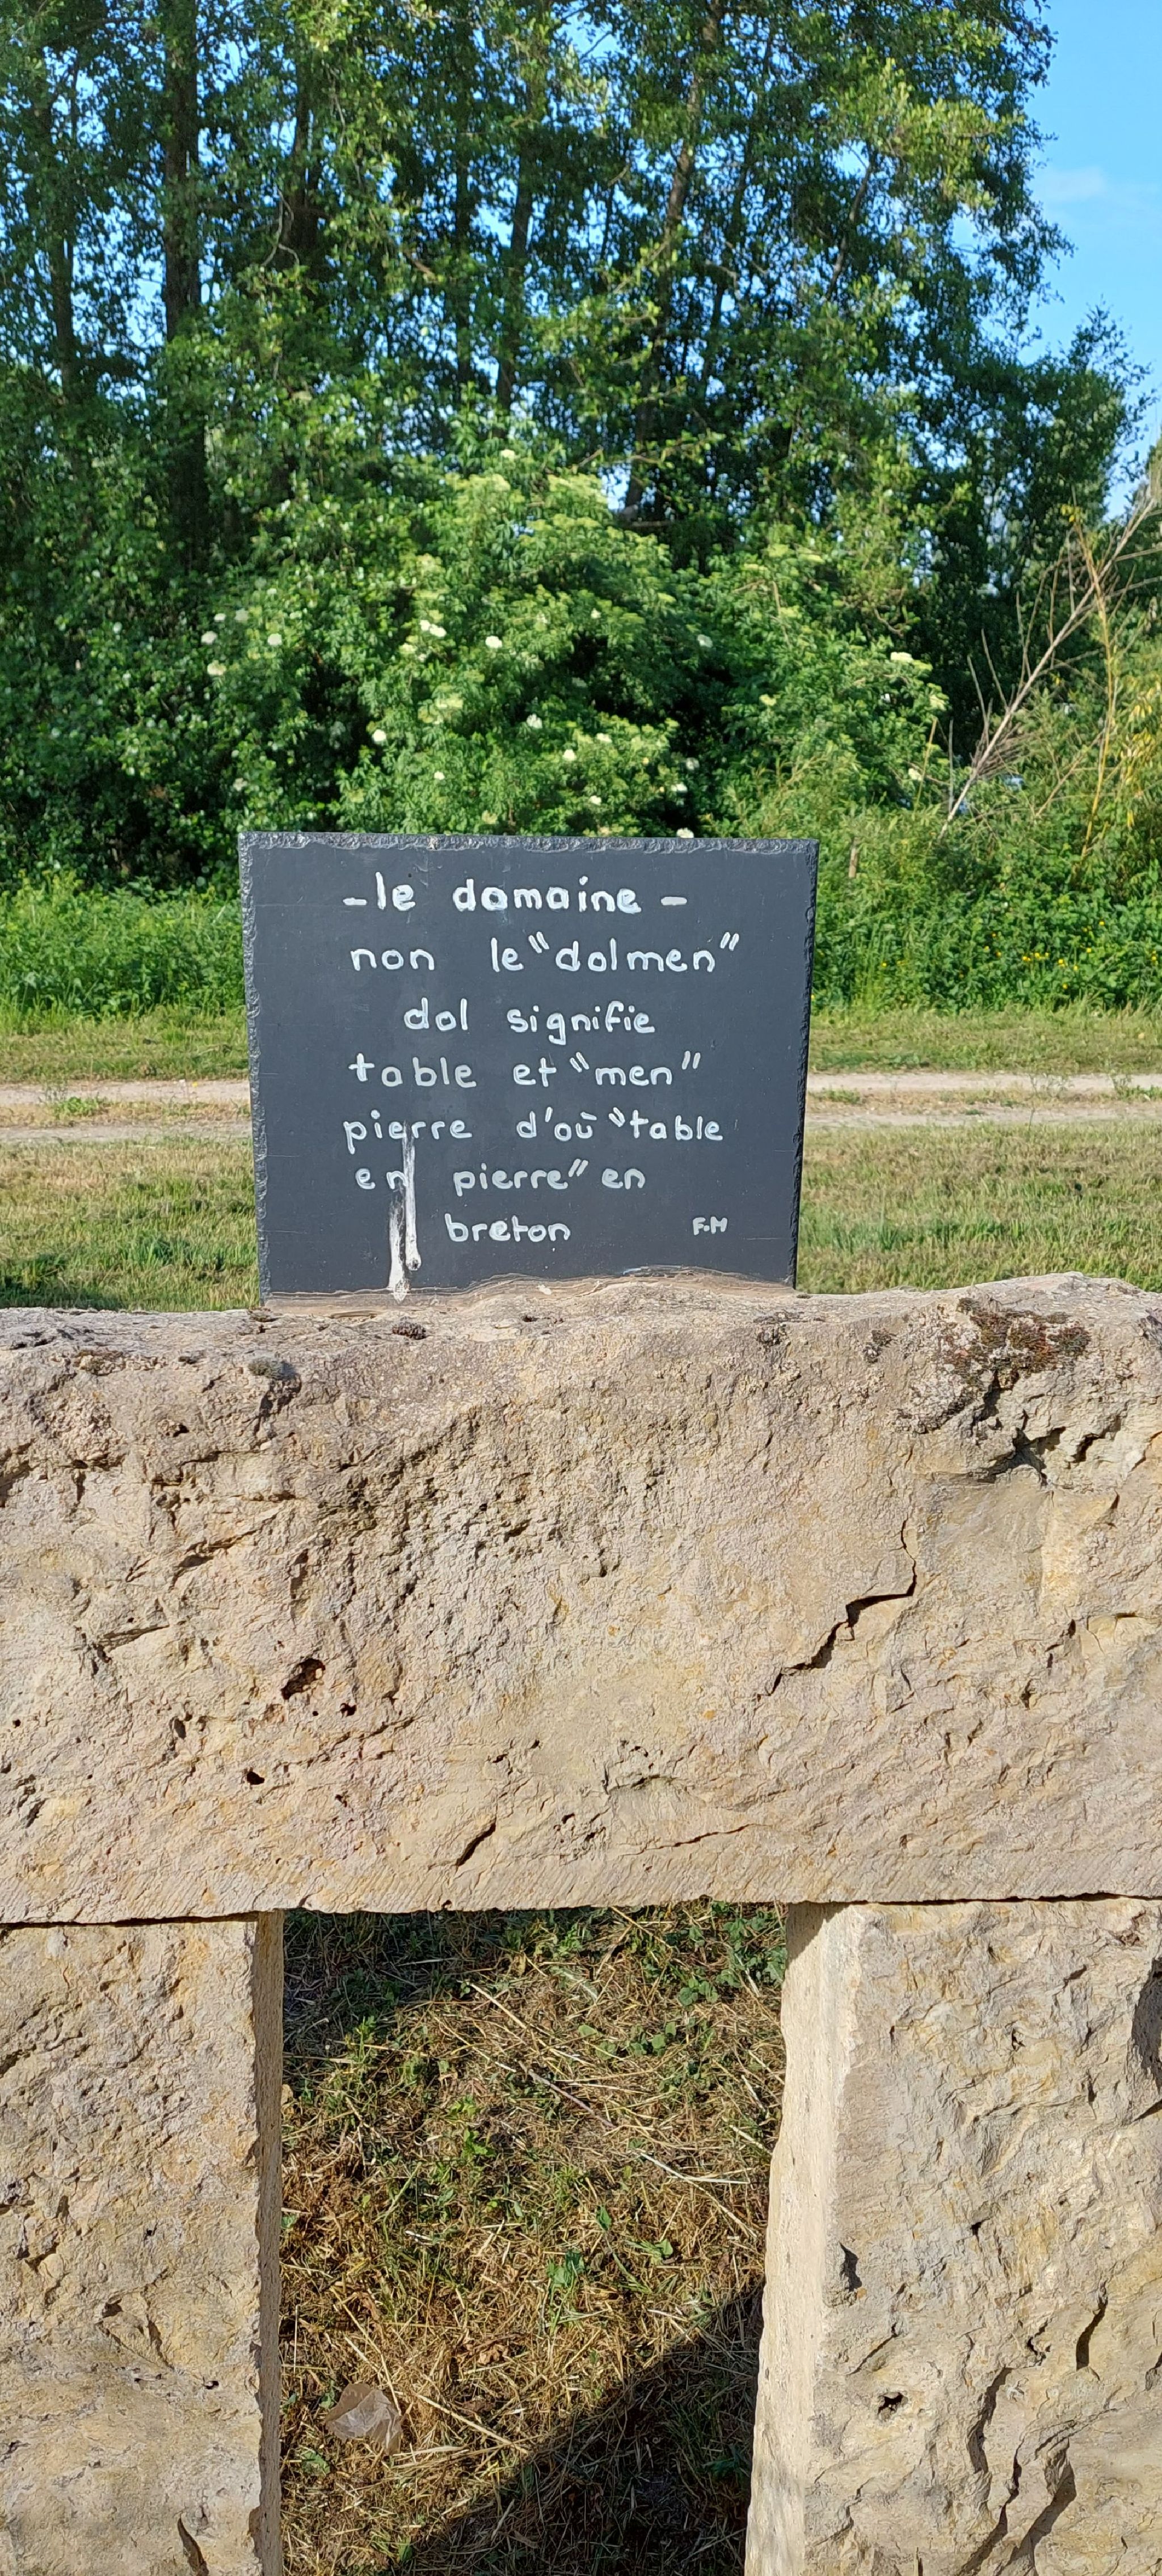 -le domaine-
non le "dolmen"
dol signifie
table et "men"
pierre d'où "table
en pierre" en
breton F.M